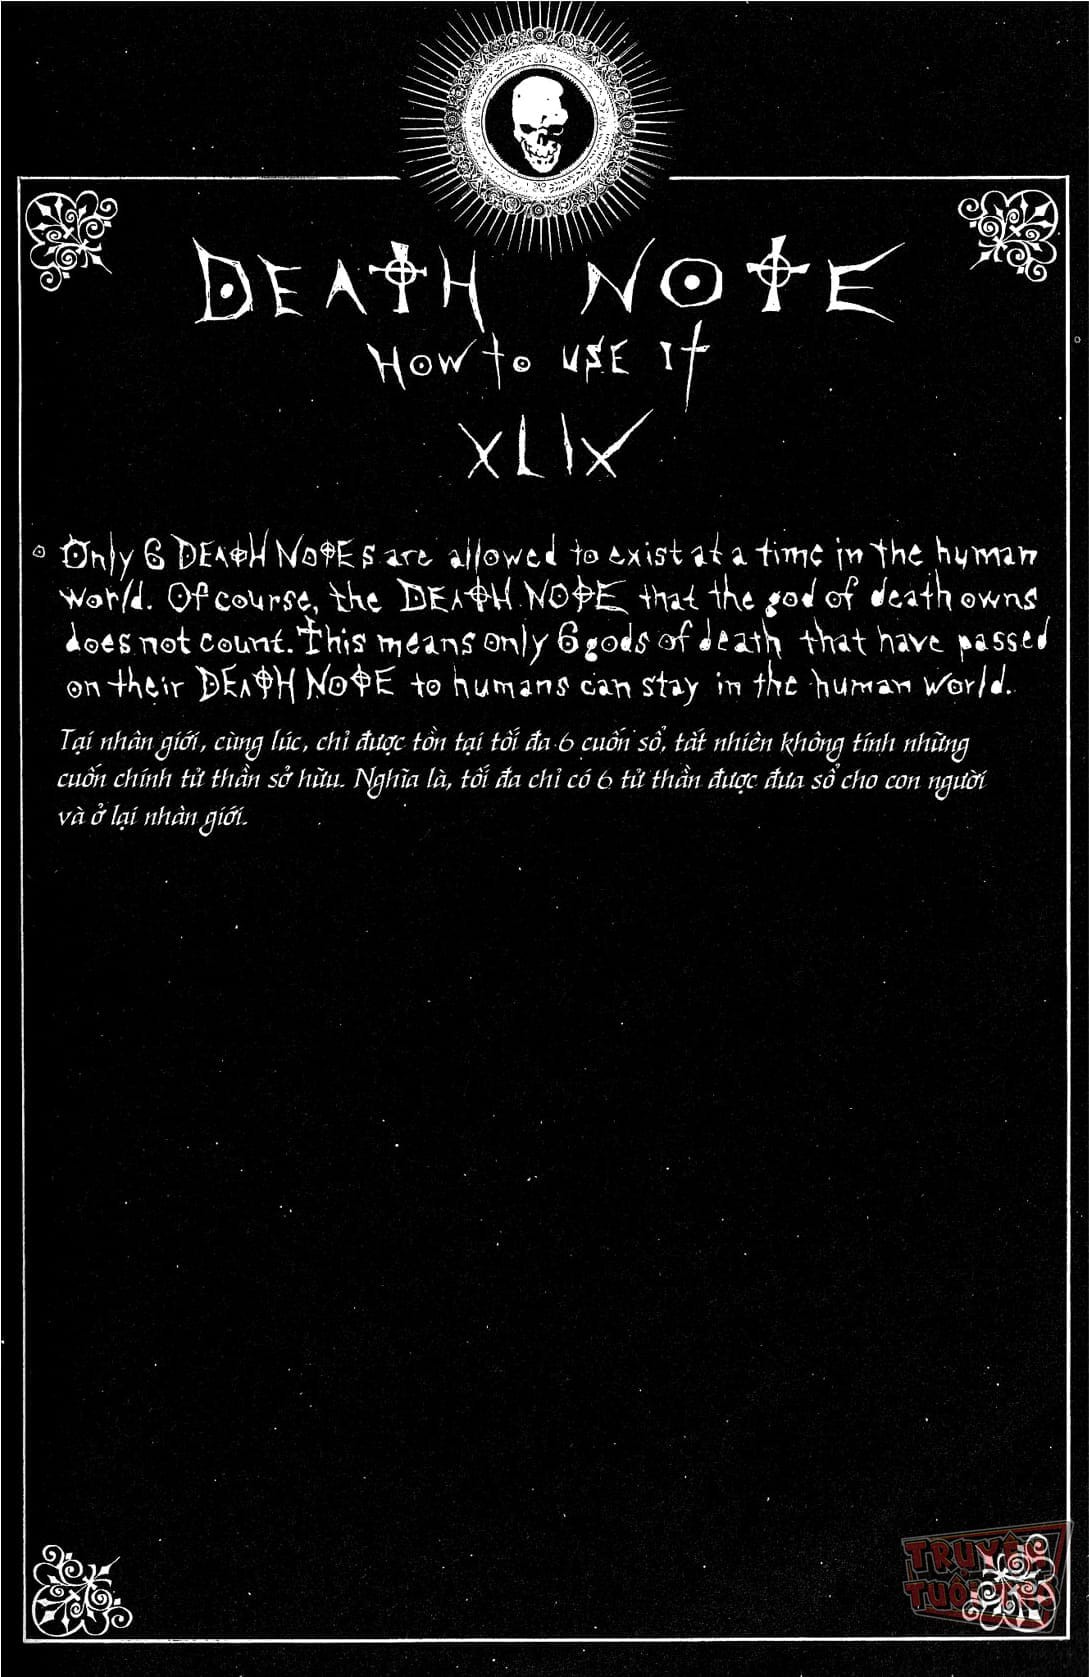 DEATH NOTE
HOW to USE It
XLIX
Only 6 DEATH NOTES are allowed to exist at a time in the human
world. Of course, the DEATH NOTE that the god of death owns
does not count. This means only 6 gods of death that have passed
on their DEATH NOTE to humans can stay in the human world.
Tại nhân giới, cùng lúc, chỉ được tồn tại tối đa 6 cuốn sổ, tất nhiên không tính những
cuốn chính tử thần sở hữu. Nghĩa là, tối đa chỉ có 6 tử thần được đưa sổ cho con người
và ở lại nhân giới.
TRUYỆN
TUỔI